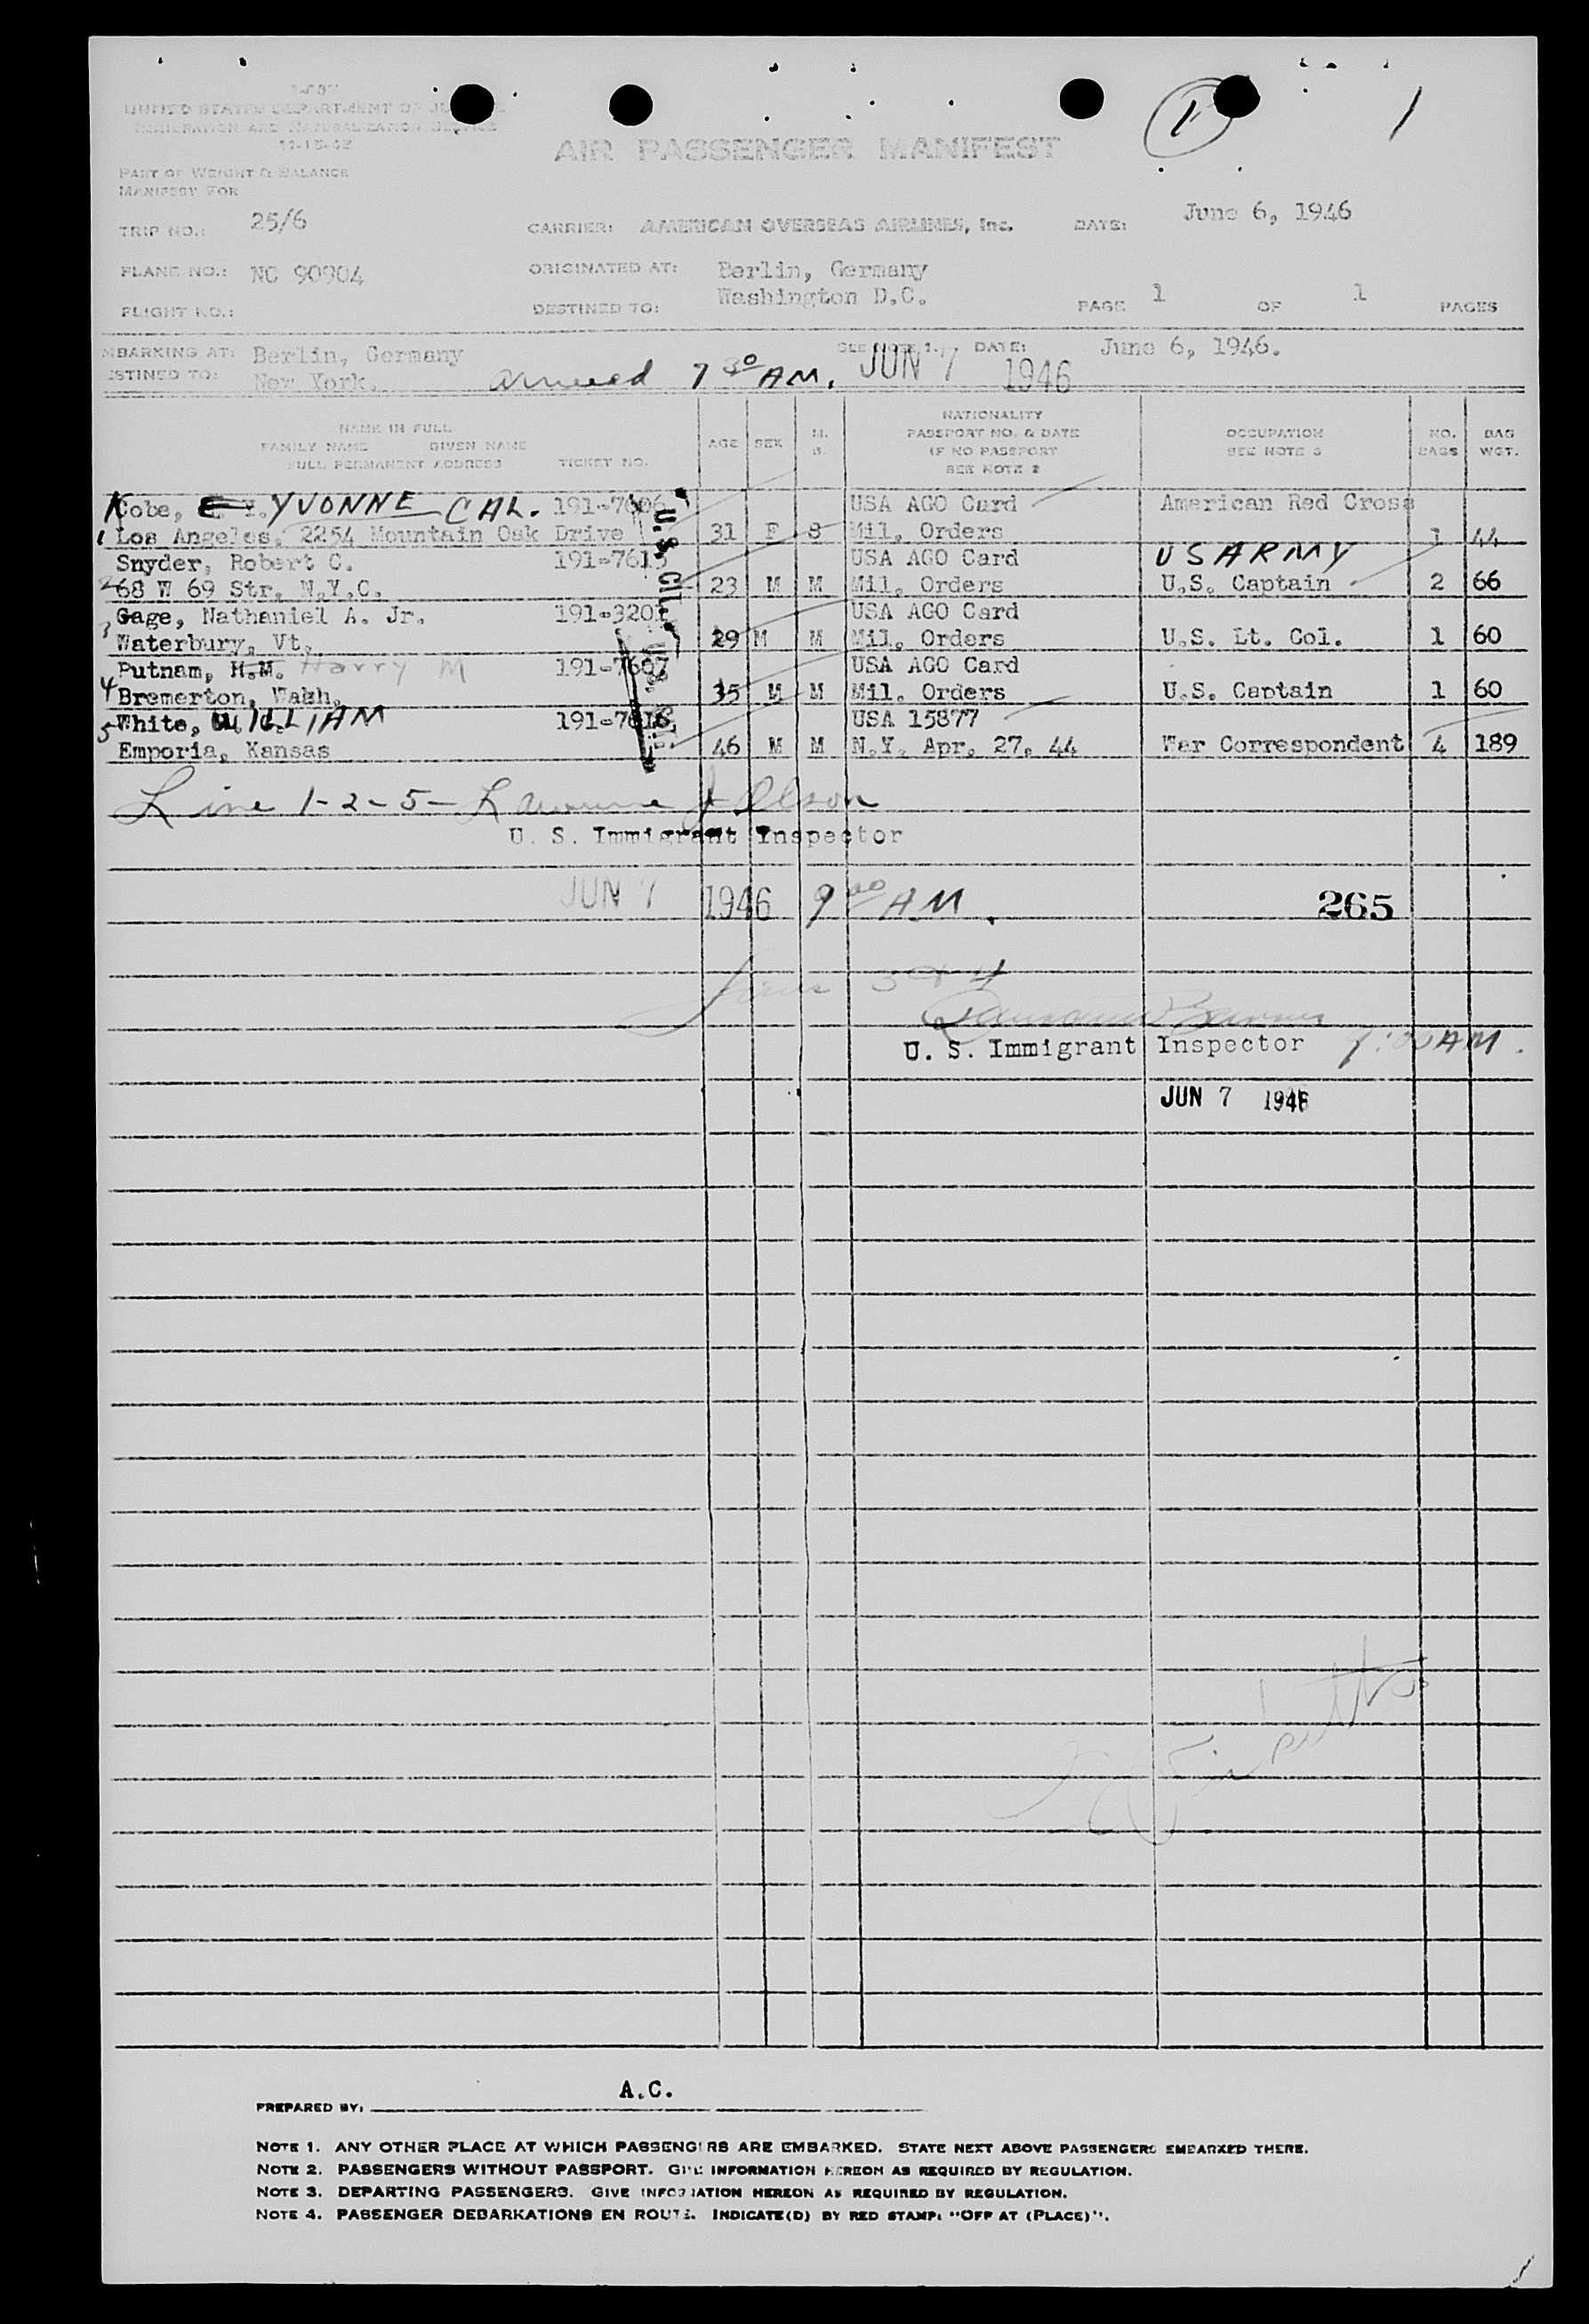 I-G87
UNITED STATES DEPARTMENT OF JUSTICE
IMMIGRATION AND NATURALIZATION SERVICE
11-15-42
AIR PASSENGER MANIFEST
1
1
PART OF WEIGHT & BALANCE
MANIFEST FOR
TRIP NO.: 25/6
CARRIER: AMERICAN OVERSEAS AIRLINES, Inc.
DATE: June 6, 1946
PLANE NO.: NC 90904
ORIGINATED AT: Berlin, Germany
FLIGHT NO.:
DESTINED TO: Washington D.C.
PAGE 1 OF 1 PAGES
MBARKING AT: Berlin, Germany
SEE NOTE 1. DATE: June 6, 1946.
ESTINED TO: New York.
arrived 7 30 AM. JUN 7 1946
NAME IN FULL
FAMILY NAME GIVEN NAME
FULL PERMANENT ADDRESS TICKET NO.
AGE SEX M. S.
NATIONALITY
PASSPORT NO. & DATE
IF NO PASSPORT
SEE NOTE 2
OCCUPATION
SEE NOTE 3
NO. BAGS
BAG WGT.
Kobe, E. Y. YVONNE CAL. 191-7606 USA AGO Card American Red Cross
1 Los Angeles, 2254 Mountain Oak Drive 31 F S Mil. Orders 1 44
Snyder, Robert C. 191-7615 USA AGO Card US ARMY
2 68 W 69 Str. N.Y.C. 23 M M Mil. Orders U.S. Captain 2 66
Gage, Nathaniel A. Jr. 191-3201 USA AGO Card
3 Waterbury, Vt. 29 M M Mil. Orders U.S. Lt. Col. 1 60
Putnam, H.M. Harry M 191-7607 USA AGO Card
4 Bremerton, Wash. 35 M M Mil. Orders U.S. Captain 1 60
White, WILLIAM 191-7616 USA 15877
5 Emporia, Kansas 46 M M N.Y. Apr. 27. 44 War Correspondent 4 189
U.S. Cit.
U.S. Cit.
Line 1-2-5- Lawrence J Olson
U. S. Immigrant Inspector
JUN 7 1946 9 00 AM.
265
Lines 3 & 4
U. S. Immigrant Inspector 9:00 AM.
JUN 7 1946
A.C.
PREPARED BY:
NOTE 1. ANY OTHER PLACE AT WHICH PASSENGERS ARE EMBARKED. STATE NEXT ABOVE PASSENGERS EMBARKED THERE.
NOTE 2. PASSENGERS WITHOUT PASSPORT. GIVE INFORMATION HEREON AS REQUIRED BY REGULATION.
NOTE 3. DEPARTING PASSENGERS. GIVE INFORMATION HEREON AS REQUIRED BY REGULATION.
NOTE 4. PASSENGER DEBARKATIONS EN ROUTE. INDICATE(D) BY RED STAMP: "OFF AT (PLACE)".